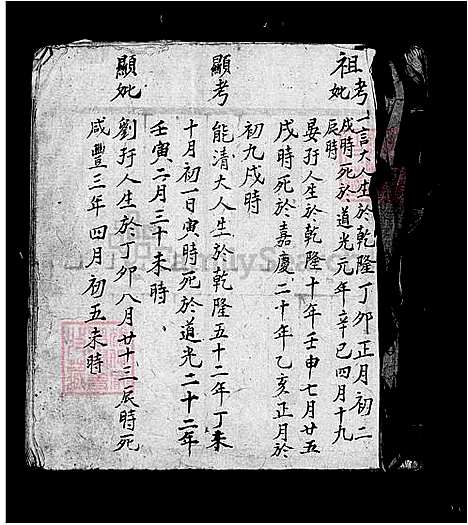 祖考 丁言大人生於乾隆丁卯正月初二
戌時死於道光元年辛巳四月十九
辰時
祖妣 晏孖人生於乾隆十年壬申七月廿五
戌時死於嘉慶二十年乙亥正月於
初九戌時
顯考 能清大人生於乾隆五十二年丁未
十月初一日寅時死於道光二十二年
壬寅二月三十未時、
顯妣 劉孖人生於丁卯八月廿十二辰時死
咸豐三年四月初五未時
FamilySearch